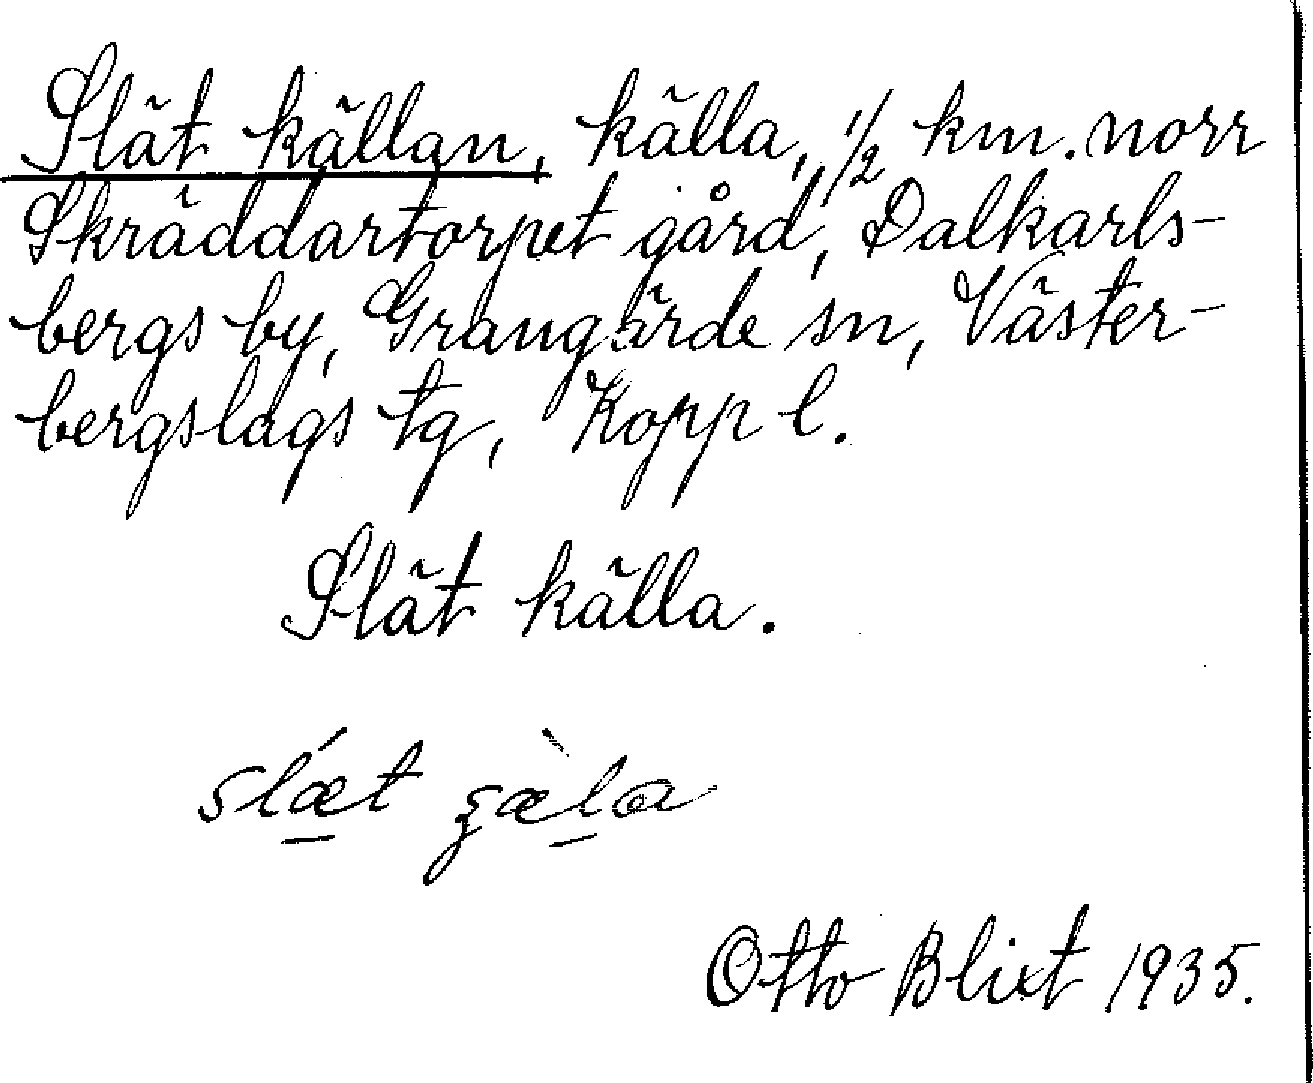 Slät källan, källa, 1/2 km. norr
Skräddartorpet gård, Dalkarls-
bergs by, Grangärde sn, Väster-
bergslags tg, Kopp l.
Slät källa.
slǽ̲t
Otto Blixt 1935.